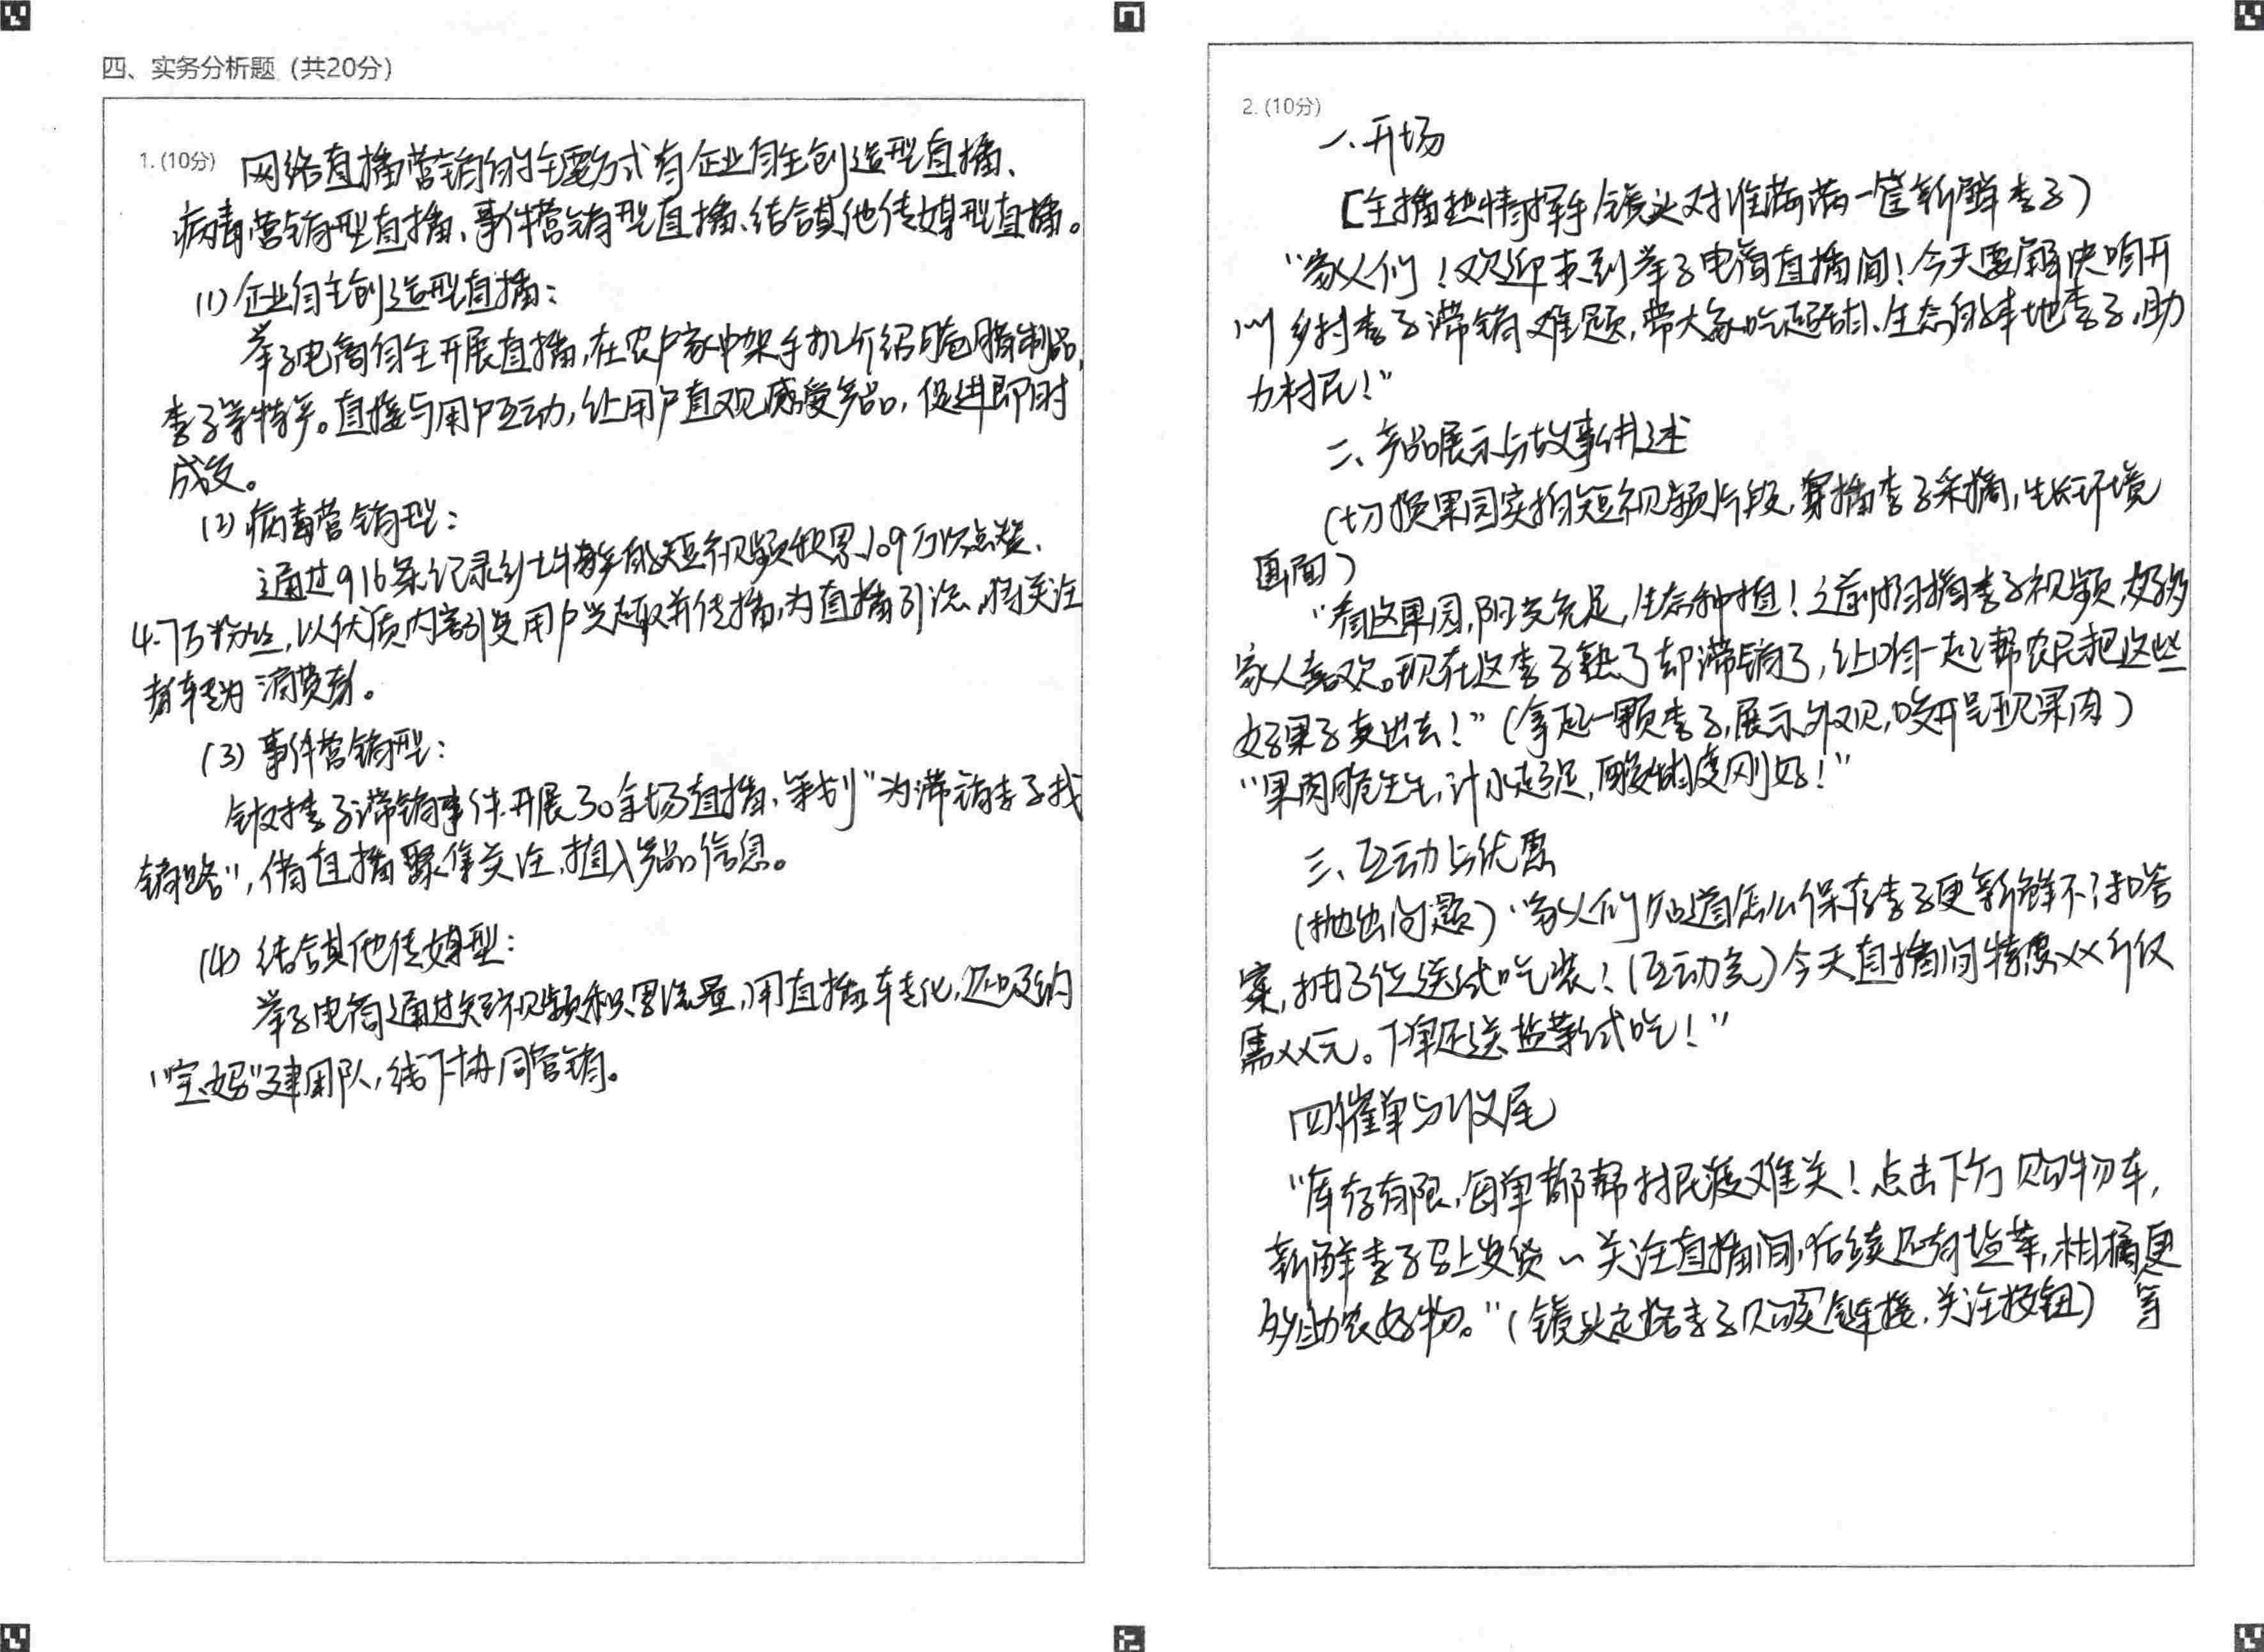 四、实务分析题（共20分）
1.(10分) 网络直播营销的主要方式有企业自主创造型直播、
病毒营销型直播、事件营销型直播、结合其他传媒型直播。
(1)企业自主创造型直播：
举子电商自主开展直播,在农户家中架手机介绍腌腊制品,
李子等特产。直接与用户互动,让用户直观感受产品,促进即时
成交。
(2)病毒营销型：
通过916条记录乡土特产的短视频积累109万次点赞、
4.7万粉丝,以优质内容引发用户兴趣并传播,为直播引流,将关注
者转为消费者。
(3)事件营销型：
针对李子滞销事件,开展30余场直播,策划"为滞销李子找
销路",借直播聚集关注,植入产品信息。
(4)结合其他传媒型：
举子电商通过短视频积累流量,用直播转化,还吸纳
"宝妈"建团队,线下协同营销。
2.(10分)
一、开场
[主播热情挥手,镜头对准满满一筐新鲜李子)
"家人们!欢迎来到举子电商直播间!今天要解决咱开
川乡村李子滞销难题,带大家吃超甜、生态的本地李子,助
力村民!"
二、产品展示与故事讲述
(切换果园实拍短视频片段,穿插李子采摘,生长环境
画面)
"看这果园,阳光充足,生态种植!之前拍摘李子视频,好多
家人喜欢。现在这李子熟了却滞销了,让咱一起帮农民把这些
好果子卖出去!"(拿起一颗李子,展示外观,咬开呈现果肉)
"果肉脆生生,汁水超足,酸甜度刚好!"
三、互动与优惠
(抛出问题)"家人们知道怎么保存李子更新鲜不?扣答
案,抽3位送试吃装!(互动完)今天直播间特惠XX斤仅
需XX元。下单还送盐菜试吃!"
四、催单与收尾
"库存有限,每单都帮村民渡难关!点击下方购物车,
新鲜李子马上发货~关注直播间,后续还有盐菜,柑橘更
多助农好物。"(镜头定格李子购买链接,关注按钮) 等